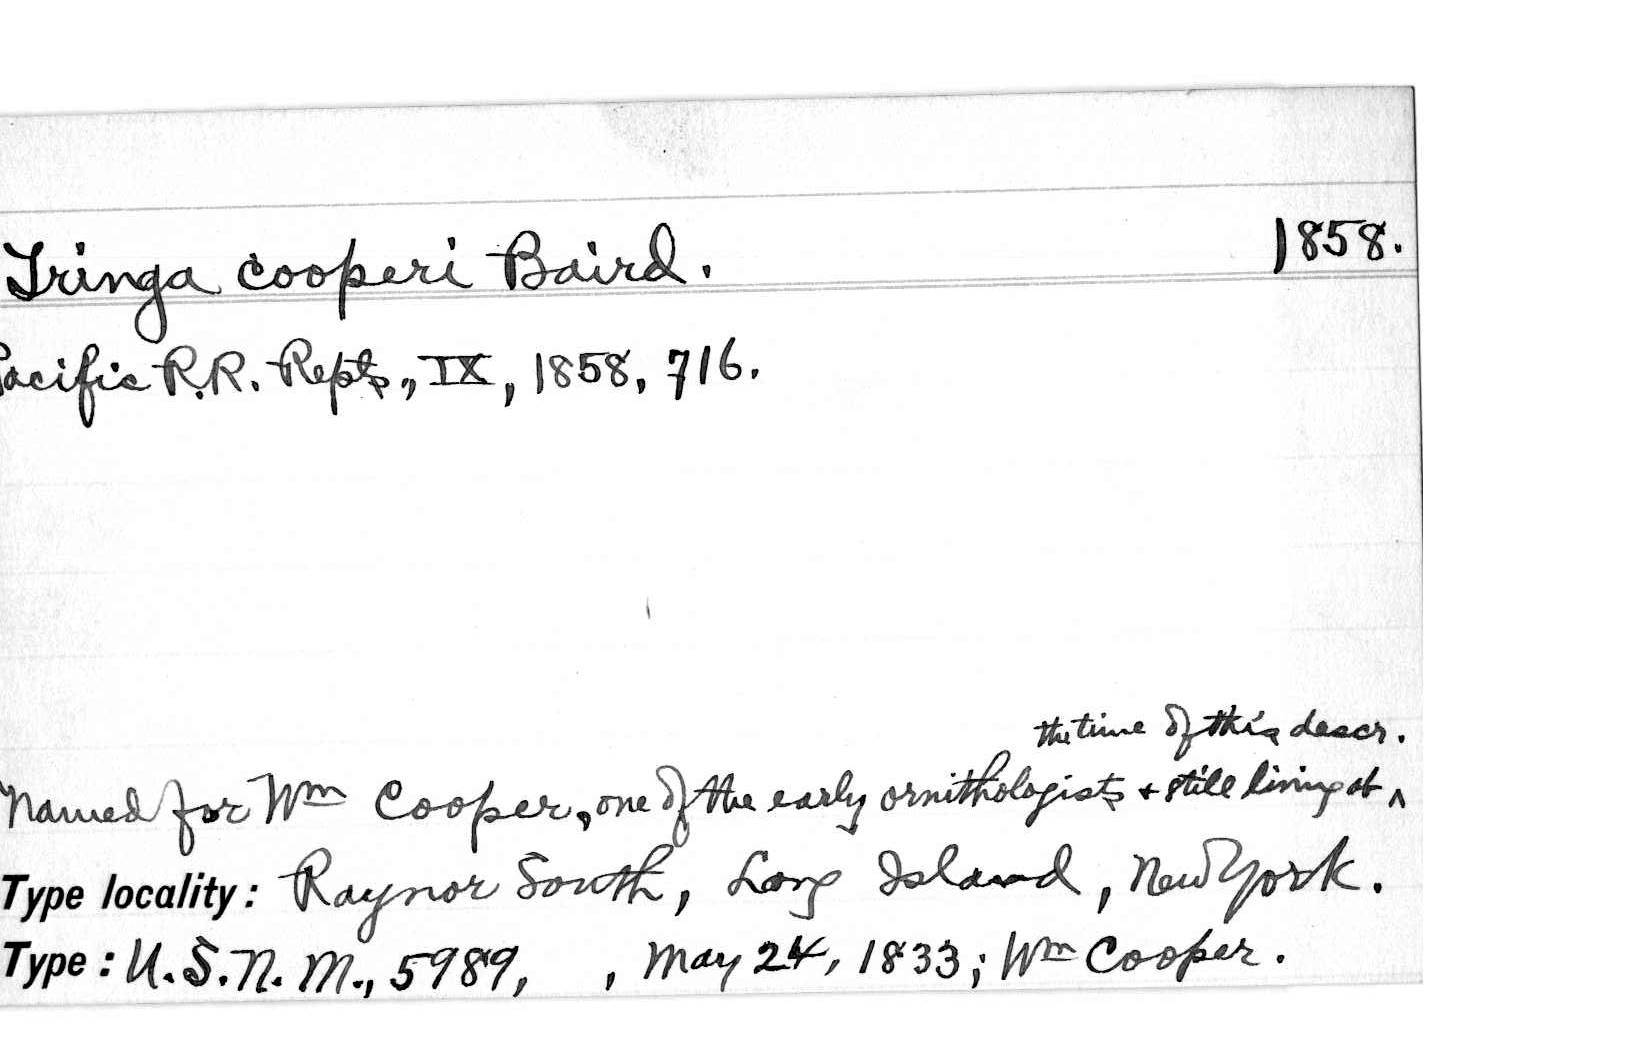 Tringa cooperi Baird. 1858.
Pacific R.R. Repts, IX, 1858, 716.
the time of this descr.
Named for Wm Cooper, one of the early ornithologists + still living at ^
Type locality: Raynor South, Long Island, New York.
Type: U.S.N.M., 5989, , May 24, 1833; Wm Cooper.